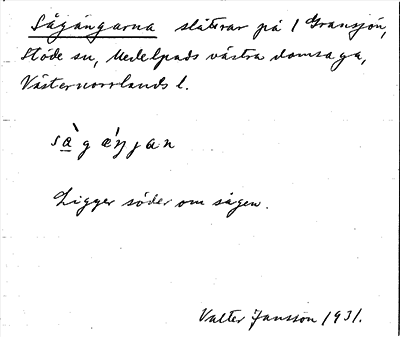 Sågängarna slåttrar på 1 Gransjön,
Stöde sn, Medelpads västra domsaga,
Västernorrlands l.
Ligger söder om sågen.
Valter Jansson 1931.